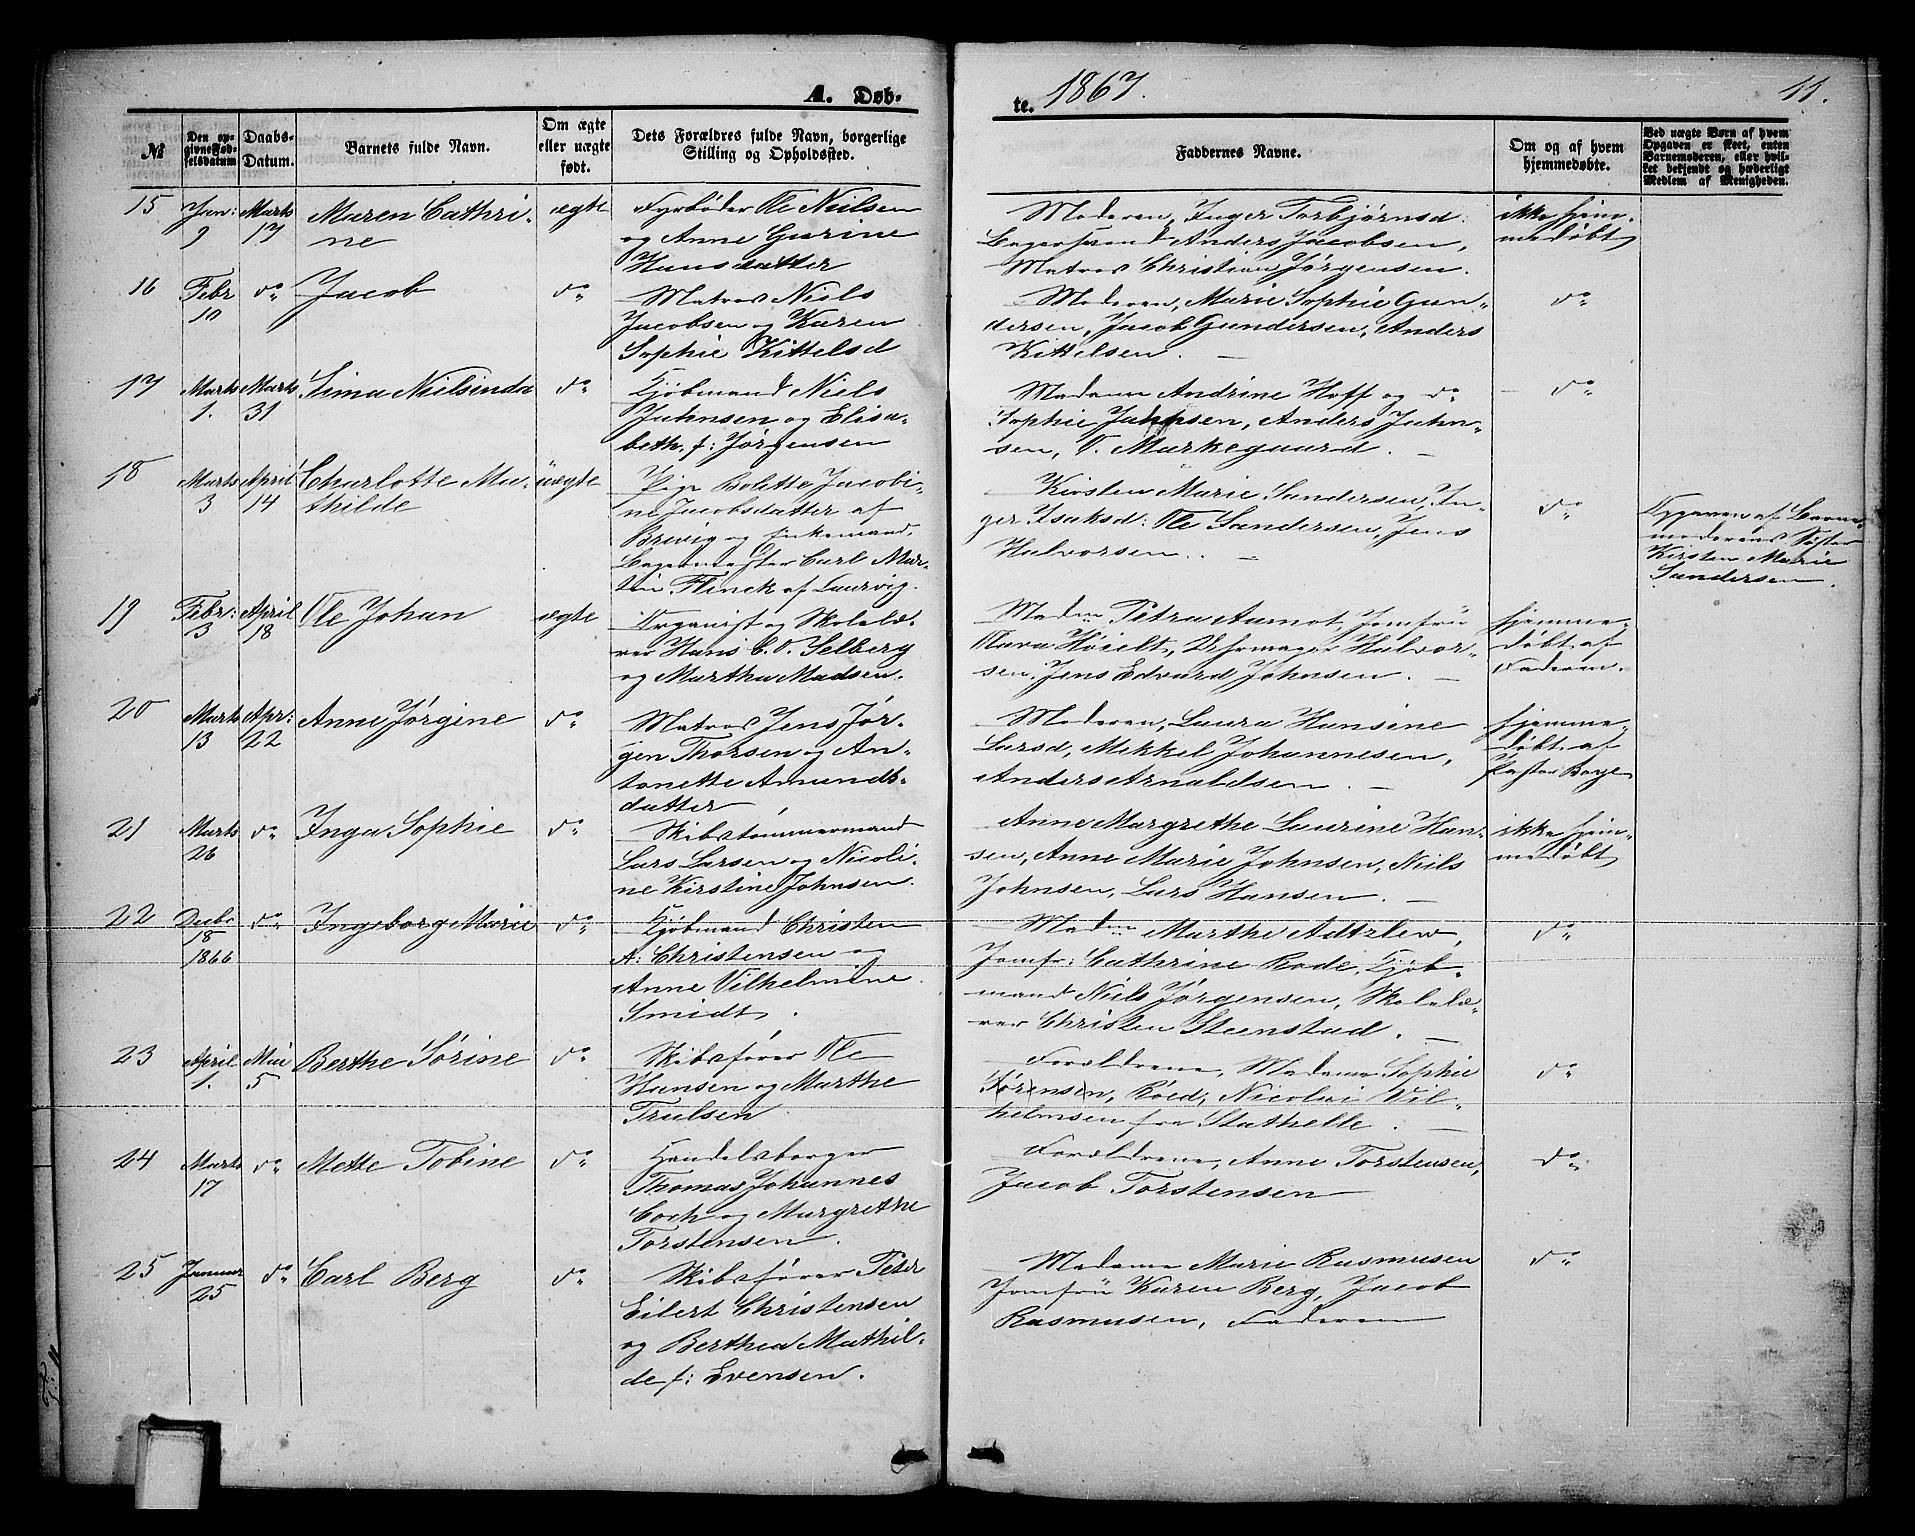 A. Døb-
te. 1867. 11.
№
Den op-
givne Fød-
selsdatum
Daabs-
Datum.
Barnets fulde Navn.
Om ægte
eller uægte
født.
Dets Forældres fulde Navn, borgerlige
Stilling og Opholdssted.
Faddernes Navne.
Om og af hvem
hjemmedøbte.
Ved uægte Børn af hvem
Opgaven er skeet, enten
Barnemoderen, eller hvil-
ket bekjendt og hæderligt
Medlem af Menigheden.
15
Jan:
9
Marts
17
Maren Cathri-
ne
ægte
Fyrbøder Ole Nielsen
og Anne Gurine
Hansdatter
Moderen, Inger Torbjørnsd:
Anders Jacobsen,
Matros Christian Jørgensen.
ikke hjem-
medøbt
16
Febr
10
do
Jacob
do
Matros Niels
Jacobsen og Karen
Sophie Kittelsd
Moderen, Marie Sophie Gun-
dersen, Jacob Gundersen, Anders
Kittelsen.
do
17
Marts
1.
Marts
31
Sima Nielsinda
do
Kjøbmand Niels
Jahnsen og Elisa-
beth f: Jørgensen
Madame Andrine Hoff og do
Sophie Jahnsen, Anders Jahn-
sen, O. Markegaard.
do
18
Marts
3
April
14
Charlotte Ma-
thilde
uægte
Pige Bolette Jacobi-
ne Jacobsdatter af
Brevig og Enkemand,
Carl Mar-
tin Flinck af Laurvig.
Kirsten Marie Sandersen, In-
ger Isaksd: Ole Sandersen, Jens
Halvorsen.
do
Opgaven af Barne-
moderens Søster
Kirsten Marie
Sandersen.
19
Febr:
3
April
18
Ole Johan
ægte
Organist og Skolelæ-
rer Hans C. O. Selberg
og Martha Madsen.
Madm Petra Aamot, Jomfru
Olava Høielt, Uhrmager Halvor-
sen, Jens Edvard Johnsen.
hjemme-
døbt af
Faderen.
20
Marts
13
Apr:
22
Anne Jørgine
do
Matros Jens Jør-
gen Thorsen og An-
tonette Amunds-
datter
Moderen, Laura Hansine
Larsd, Mikkel Johannesen,
Anders Arnoldsen.
hjemme-
døbt af
Pastor Borge
21
Marts
26
do
Inga Sophie
do
Skibstømmermand
Lars Larsen og Nicoli-
ne Kirstine Johnsen.
Anne Margrethe Laurine Han-
sen, Anne Marie Johnsen, Niels
Johnsen, Lars Hansen.
ikke hjem-
medøbt
22
Decbr
18
1866
do
Ingeborg Marie
do
Kjøbmand Christen
A: Christensen og
Anne Vilhelmine
Smidt.
Madm Marthe Adtzlew,
Jomfr: Cathrine Rode, Kjøb-
mand Niels Jørgensen, Skolelæ-
rer Christen Steenstad.
do
23
April
1.
Mai
5
Berthe Sørine
do
Skibsfører Ole
Hansen og Marthe
Trulsen
Forældrene, Madame Sophie
Sørensen, Røed, Nicolai Vil-
helmsen fra Stathelle.
do
24
Marts
17
do
Mette Tobine
do
Handelsborger
Thomas Johannes
Coch og Margrethe
Torstensen.
Forældrene, Anne Torstensen,
Jacob Torstensen
do
25
Januar
25
do
Carl Berg
do
Skibsfører Peter
Eilert Christensen
og Berthea Mathil-
de f: Evensen.
Madame Marie Rasmusen
Jomfru Karen Berg, Jacob
Rasmusen, Faderen
do